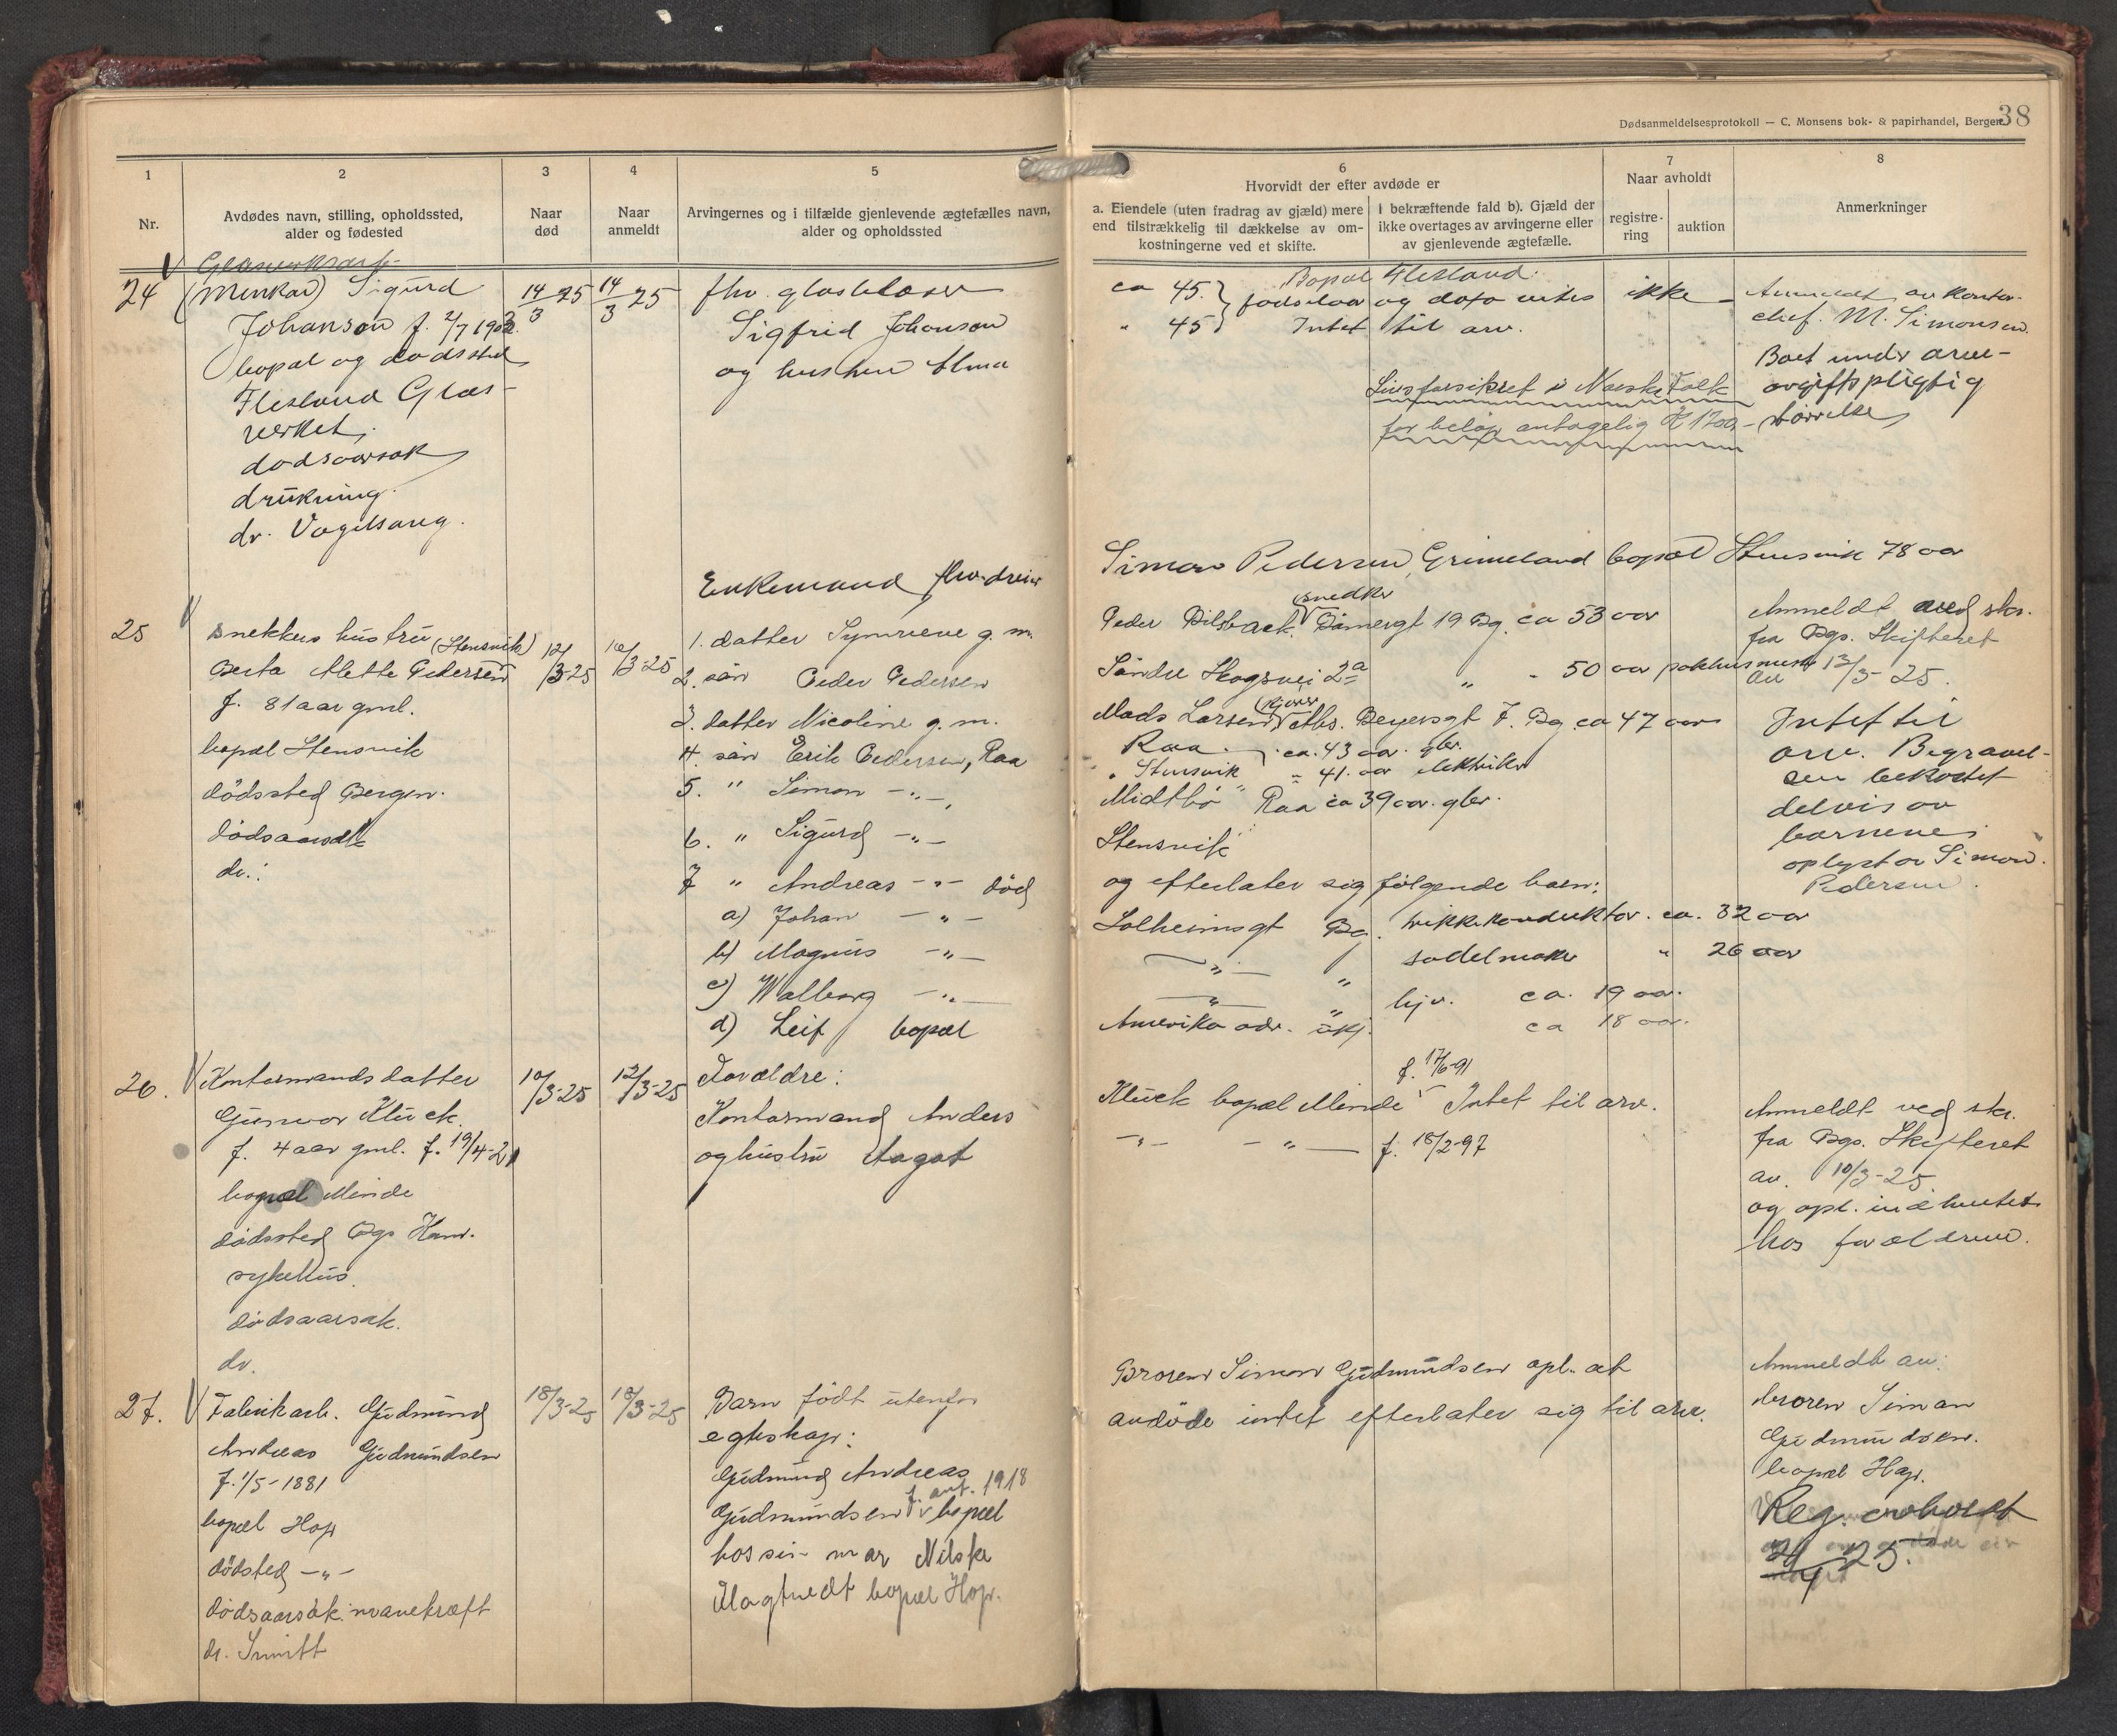 38
Dødsanmeldelsesprotokoll — C. Monsens bok- & papirhandel, Bergen.
1
Nr.
2
Avdødes navn, stilling, opholdssted,
alder og fødested
3
Naar
død
4
Naar
anmeldt
5
Arvingernes og i tilfælde gjenlevende ægtefælles navn,
alder og opholdssted
6
Hvorvidt der efter avdøde er
a. Eiendele (uten fradrag av gjæld) mere
end tilstrækkelig til dækkelse av om-
kostningerne ved et skifte.
I bekræftende fald b). Gjæld der
ikke overtages av arvingerne eller
av gjenlevende ægtefælle.
7
Naar avholdt
registre-
ring
auktion
8
Anmerkninger
Glasverksarb.
24 Sigurd
Johanson f. 2/7 1902.
bopæl og dødssted
Flesland Glas-
verket,
dødsaarsak
drukning.
dr. Vogelsang.
14/3 25
14/3 25
fhv. glasblaser
Sigfrid Johanson
og hustru Alma
ca 45.
" 45
Bopæl Flesland.
fødselsaar og dato vites ikke
Intet til arv.
Livsforsikret i Norske Folk
for beløp antagelig Kr 1700,-
Anmeldt av kontor-
chef. M. Simonsen.
Boet under arve-
avgiftspligtig
størrelse
25
Snekkers hustru (Stensvik)
Berta Mette Pedersen
f. 81 aar gml.
bopæl Stensvik
dødssted Bergen.
dødsaarsak
dr.:
12/3-25
16/3-25
Enkemand fhv. dreier
1. datter Synneve g. m.
2. søn Peder Pedersen
3. datter Nicoline g. m.
4. søn Erik Pedersen, Raa
5. " Simon -"-,
6. " Sigurd -"-
7 " Andreas -"- død
a) Johan -"-
b) Magnus -"-
c) Walborg -"-
d) Leif bopæl
Simon Pedersen Grimeland bopæl Stensvik 78 aar
snedker
Peder 19 Bg. ca 53 aar
Søndre Skogsvei 2a " - 50 aar pakhusmester
Mads Larsen Beyersgt 7. Bg. ca 47 aar
Raa. ca. 43 aar. gbr.
" Stensvik " 41. aar elektriker
Midtbø Raa ca 39 aar. gbr.
Stensvik
og efterlater sig følgende barn:
Solheimsgt Bg. trikkekonduktør. ca. 32 aar
-"- " sadelmaker " 26 aar
-"- " hjv. ca. 19 aar.
Amerika adr. ukj. ca 18 aar.
Anmeldt ved skr.
fra Bgs. Skifteret
av 13/3-25.
Intet til
arv. Begravel-
sen bekostet
delvis av
barnene
oplyst av Simon
Pedersen.
26.
Kontormands datter
Gunvor Kluck
f. 4 aar gml. f. 19/4-21
bopæl Minde
dødssted Bgs Kom.
sykehus.
dødsaarsak.
dr.
10/3-25
12/3-25
Forældre:
Kontormand Anders
og hustru Aagot
f. 17/6-91
Kluck bopæl Minde Intet til arv.
-"- -"- f. 18/2-97
Anmeldt ved skr.
fra Bgs. Skifteret
av. 10/3-25
og opl. indhentet
hos forældrene.
27.
Fabrikarb. Gudmund
Andreas Gudmundsen
f. 1/5-1881
bopæl Hop
dødsted -"-
dødsaarsak: mavekræft
dr. Smitt
18/3-25
18/3-25
Barn født utenfor
egteskap:
Gudmund Andreas
f. ant. 1918
Gudmundsen bopæl
hos sin mor Nilska
bopæl Hop.
Broren Simon Gudmundsen opl. at
avdøde intet efterlater sig til arv.
Anmeldt av:
broren Simon
Gudmundsen.
bopæl Hop.
Reg. avholdt
25.